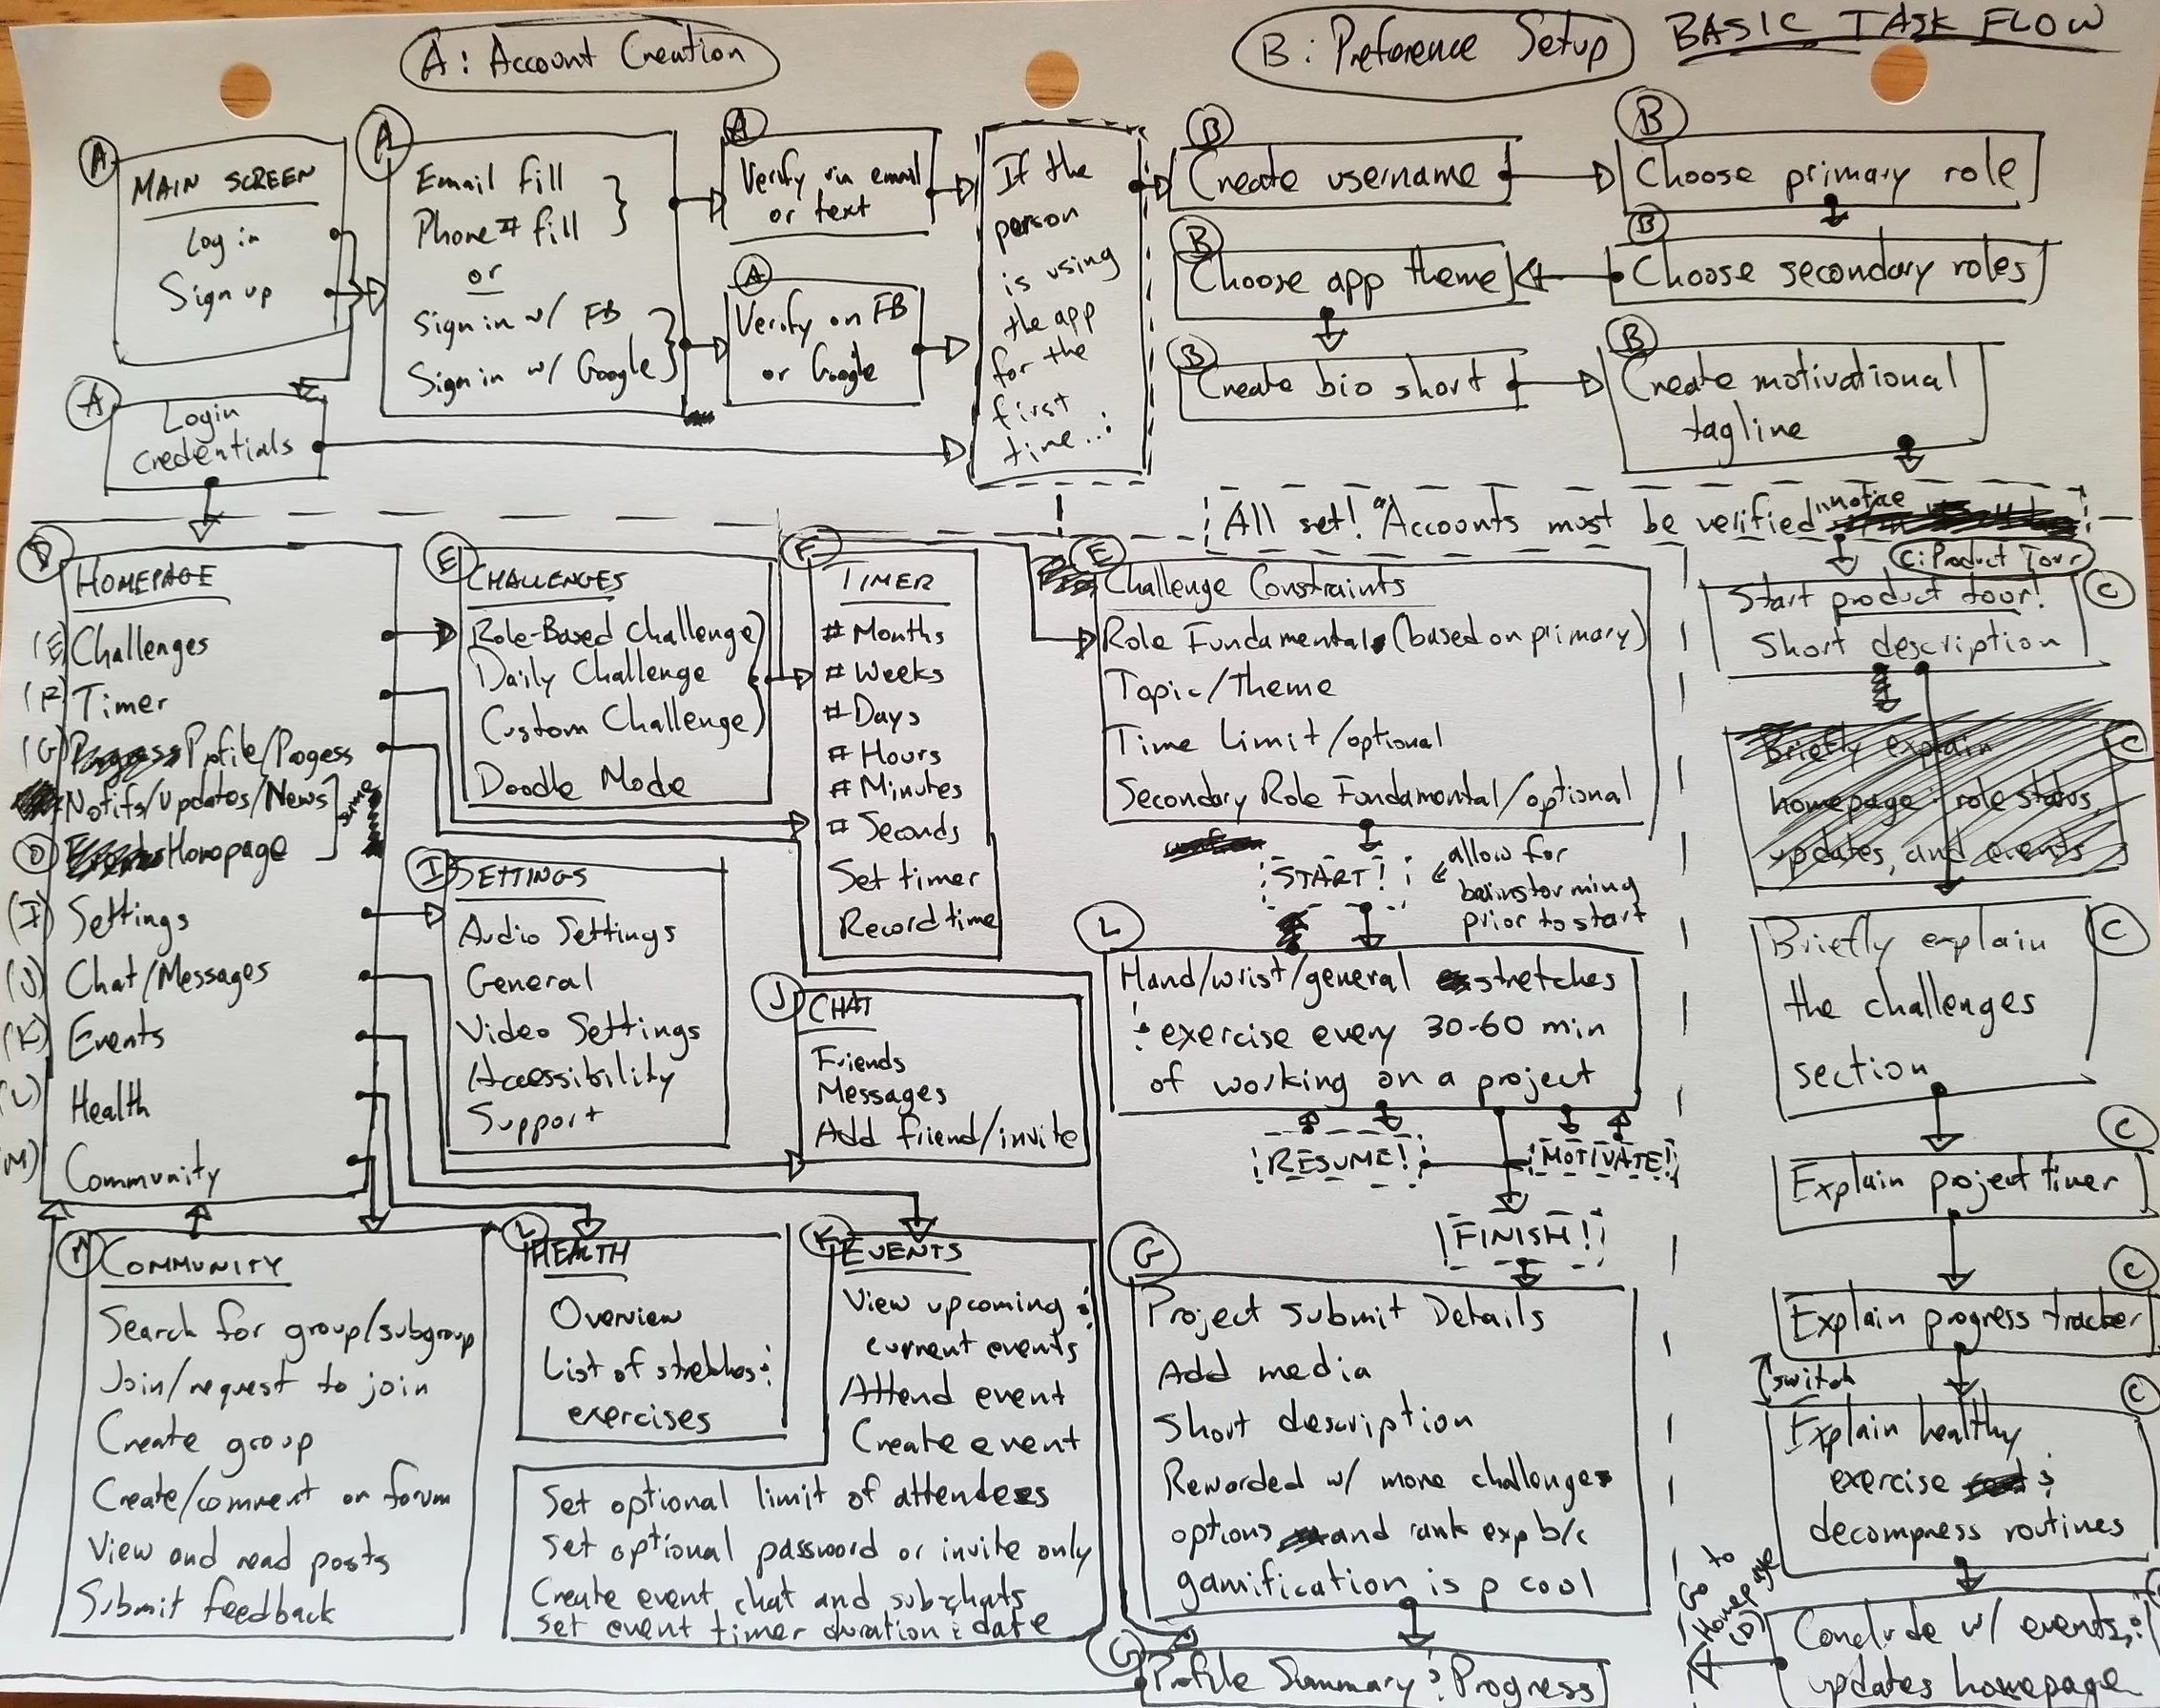 A: Account Creation
B: Preference Setup
BASIC TASK FLOW
A
MAIN SCREEN
Log in
Sign up
A
Email fill
Phone # fill
or
Sign in w/ FB
Sign in w/ Google
A
Verify via email
or text
A
Verify on FB
or Google
A
Login
credentials
If the
person
is using
the app
for the
first
time...:
B
Create username
B
Choose primary role
B
Choose secondary roles
B
Choose app theme
B
Create bio short
B
Create motivational
tagline
All set! "Accounts must be verified" notice
D
HOMEPAGE
(E) Challenges
(F) Timer
(G) Profile/Progess
Notifs/Updates/News
D Homepage
same
(I) Settings
(J) Chat/Messages
(K) Events
(L) Health
(M) Community
E
CHALLENGES
Role-Based Challenge
Daily Challenge
Custom Challenge
Doodle Mode
F
TIMER
# Months
# Weeks
# Days
# Hours
# Minutes
# Seconds
Set timer
Record time
E
Challenge Constraints
Role Fundamentals (based on primary)
Topic/Theme
Time Limit/optional
Secondary Role Fundamental/optional
START!
allow for
brainstorming
prior to start
L
Hand/wrist/general stretches
& exercise every 30-60 min
of working on a project
RESUME!
MOTIVATE!
FINISH!
G
Project Submit Details
Add media
Short description
Reworded w/ more challenges
options and rank exp b/c
gamification is p cool
G
Profile Summary & Progress
I
SETTINGS
Audio Settings
General
Video Settings
Accessibility
Support
J
CHAT
Friends
Messages
Add friend/invite
M
COMMUNITY
Search for group/subgroup
Join/request to join
Create group
Create/comment on forum
View and read posts
Submit feedback
L
HEALTH
Overview
List of stretches &
exercises
K
EVENTS
View upcoming &
current events
Attend event
Create event
Set optional limit of attendees
Set optional password or invite only
Create event chat and subchats
Set event timer duration & date
C: Product Tour
C
Start product tour!
Short description
C
Briefly explain
homepage: role status,
updates, and events
C
Briefly explain
the challenges
section
C
Explain project timer
C
Explain progress tracker
switch
C
Explain healthy
exercise &
decompress routines
Conclude w/ events &
updates homepage
Go to
Homepage
(D)